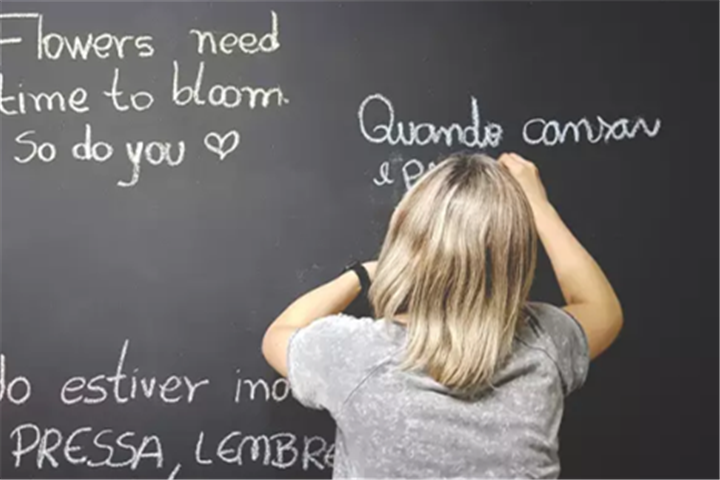 Flowers need
time to bloom.
So do you ♡
Quando cansar
e
estiver
PRESSA,